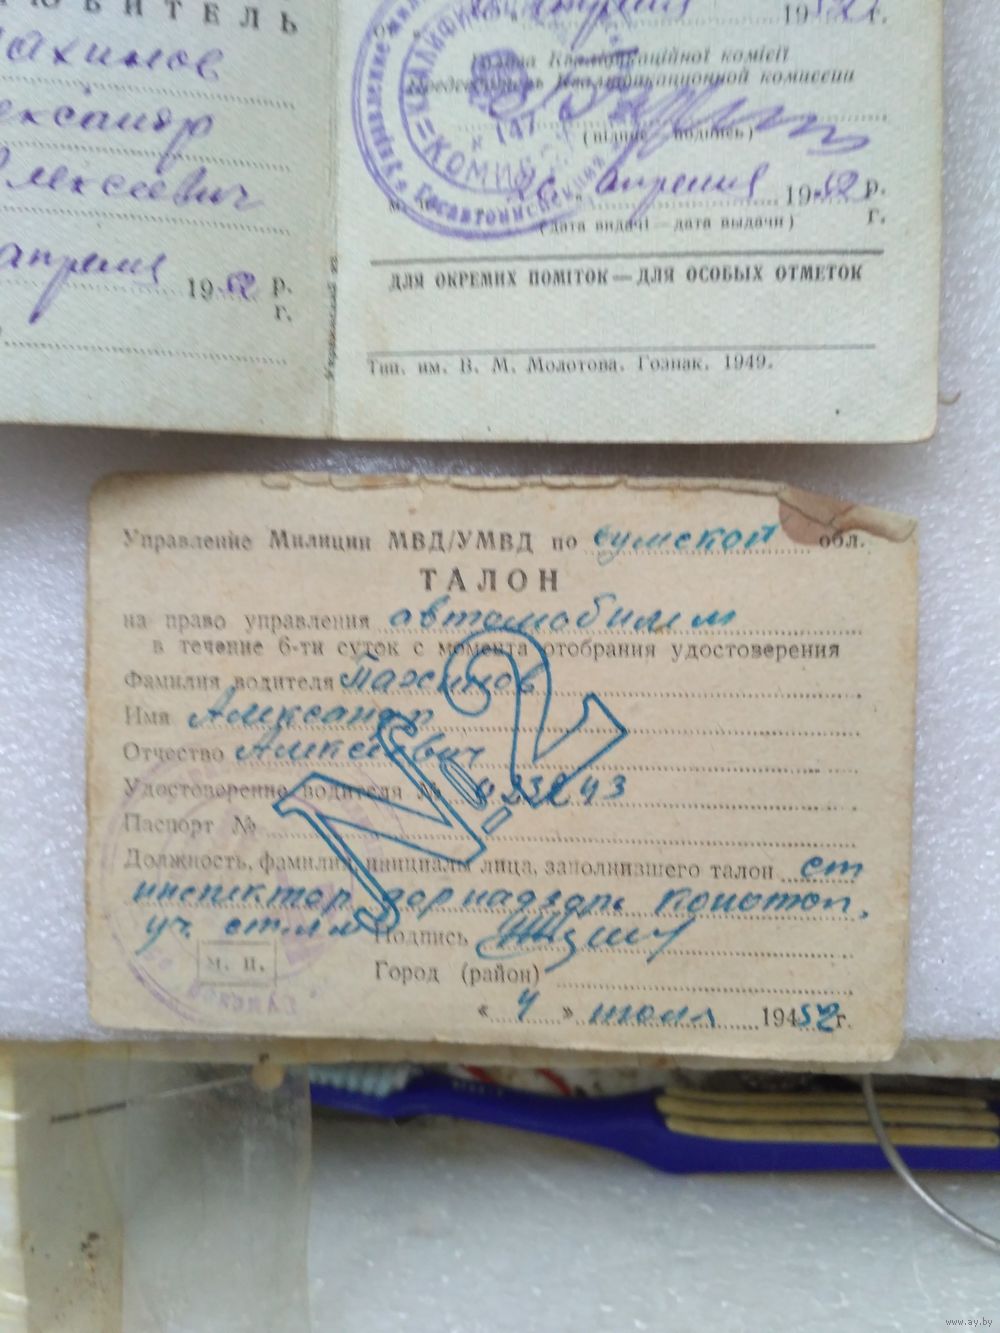 ЮБИТЕЛЬ
ахимов
лександр
Алексеевич
апреля 1952 р.
г.
апреля 1952 г.
Голова Кваліфікаційної комісії
Председатель Квалификационной комиссии
(підпис — подпись)
26 апреля 1952 р.
г.
(дата видачі — дата выдачи)
ДЛЯ ОКРЕМИХ ПОМІТОК — ДЛЯ ОСОБЫХ ОТМЕТОК
Тип. им. В. М. Молотова. Гознак. 1949.
Управление Милиции МВД/УМВД по Сумской обл.
ТАЛОН
№ 2
на право управления автомобилем
в течение 6-ти суток с момента отобрания удостоверения
Фамилия водителя Пахимов
Имя Александр
Отчество Алексеевич
Удостоверение водителя №
Паспорт №
Должность, фамилия, инициалы лица, заполнившего талон ст
инспектор дорнадзора Конотоп.
уч. Подпись
М. П.
Город (район)
« 4 » июля 1952 г.
www.ay.by